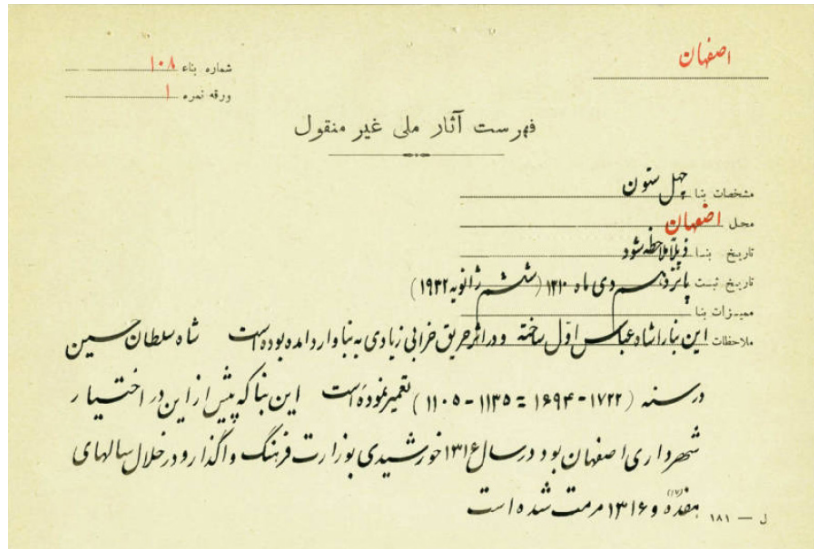 اصفهان
شماره بناء ۱۰۸
ورقه نمره ۱
فهرست آثار ملی غیر منقول
مشخصات بنا چهل ستون
محل اصفهان
تاریخ بنا ذیلا ملاحظه شود
تاریخ ثبت پانزدهم دی ماه ۱۳۱۰ (ششم ژانویه ۱۹۳۲)
ممیزات بنا
ملاحظات این بنا را شاه عباس اوّل ساخته و در اثر حریق خرابی زیادی به بنا وارد آمده بوده است شاه سلطان حسین
در سنه (۱۷۲۲ - ۱۶۹۴ = ۱۱۳۵ - ۱۱۰۵) تعمیر نموده است این بنا که پیش از این در اختیار
شهرداری اصفهان بود در سال ۱۳۱۶ خورشیدی بوزارت فرهنگ واگذار و در خلال سالهای
هفده (۱۷) و ۱۳۱۶ مرمت شده است
ل — ۱۸۱